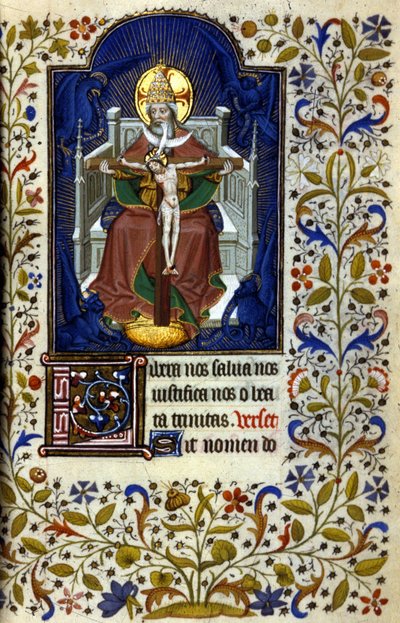 Libera nos salua nos
iustifica nos o bea
ta trinitas. Verset
Sit nomen do